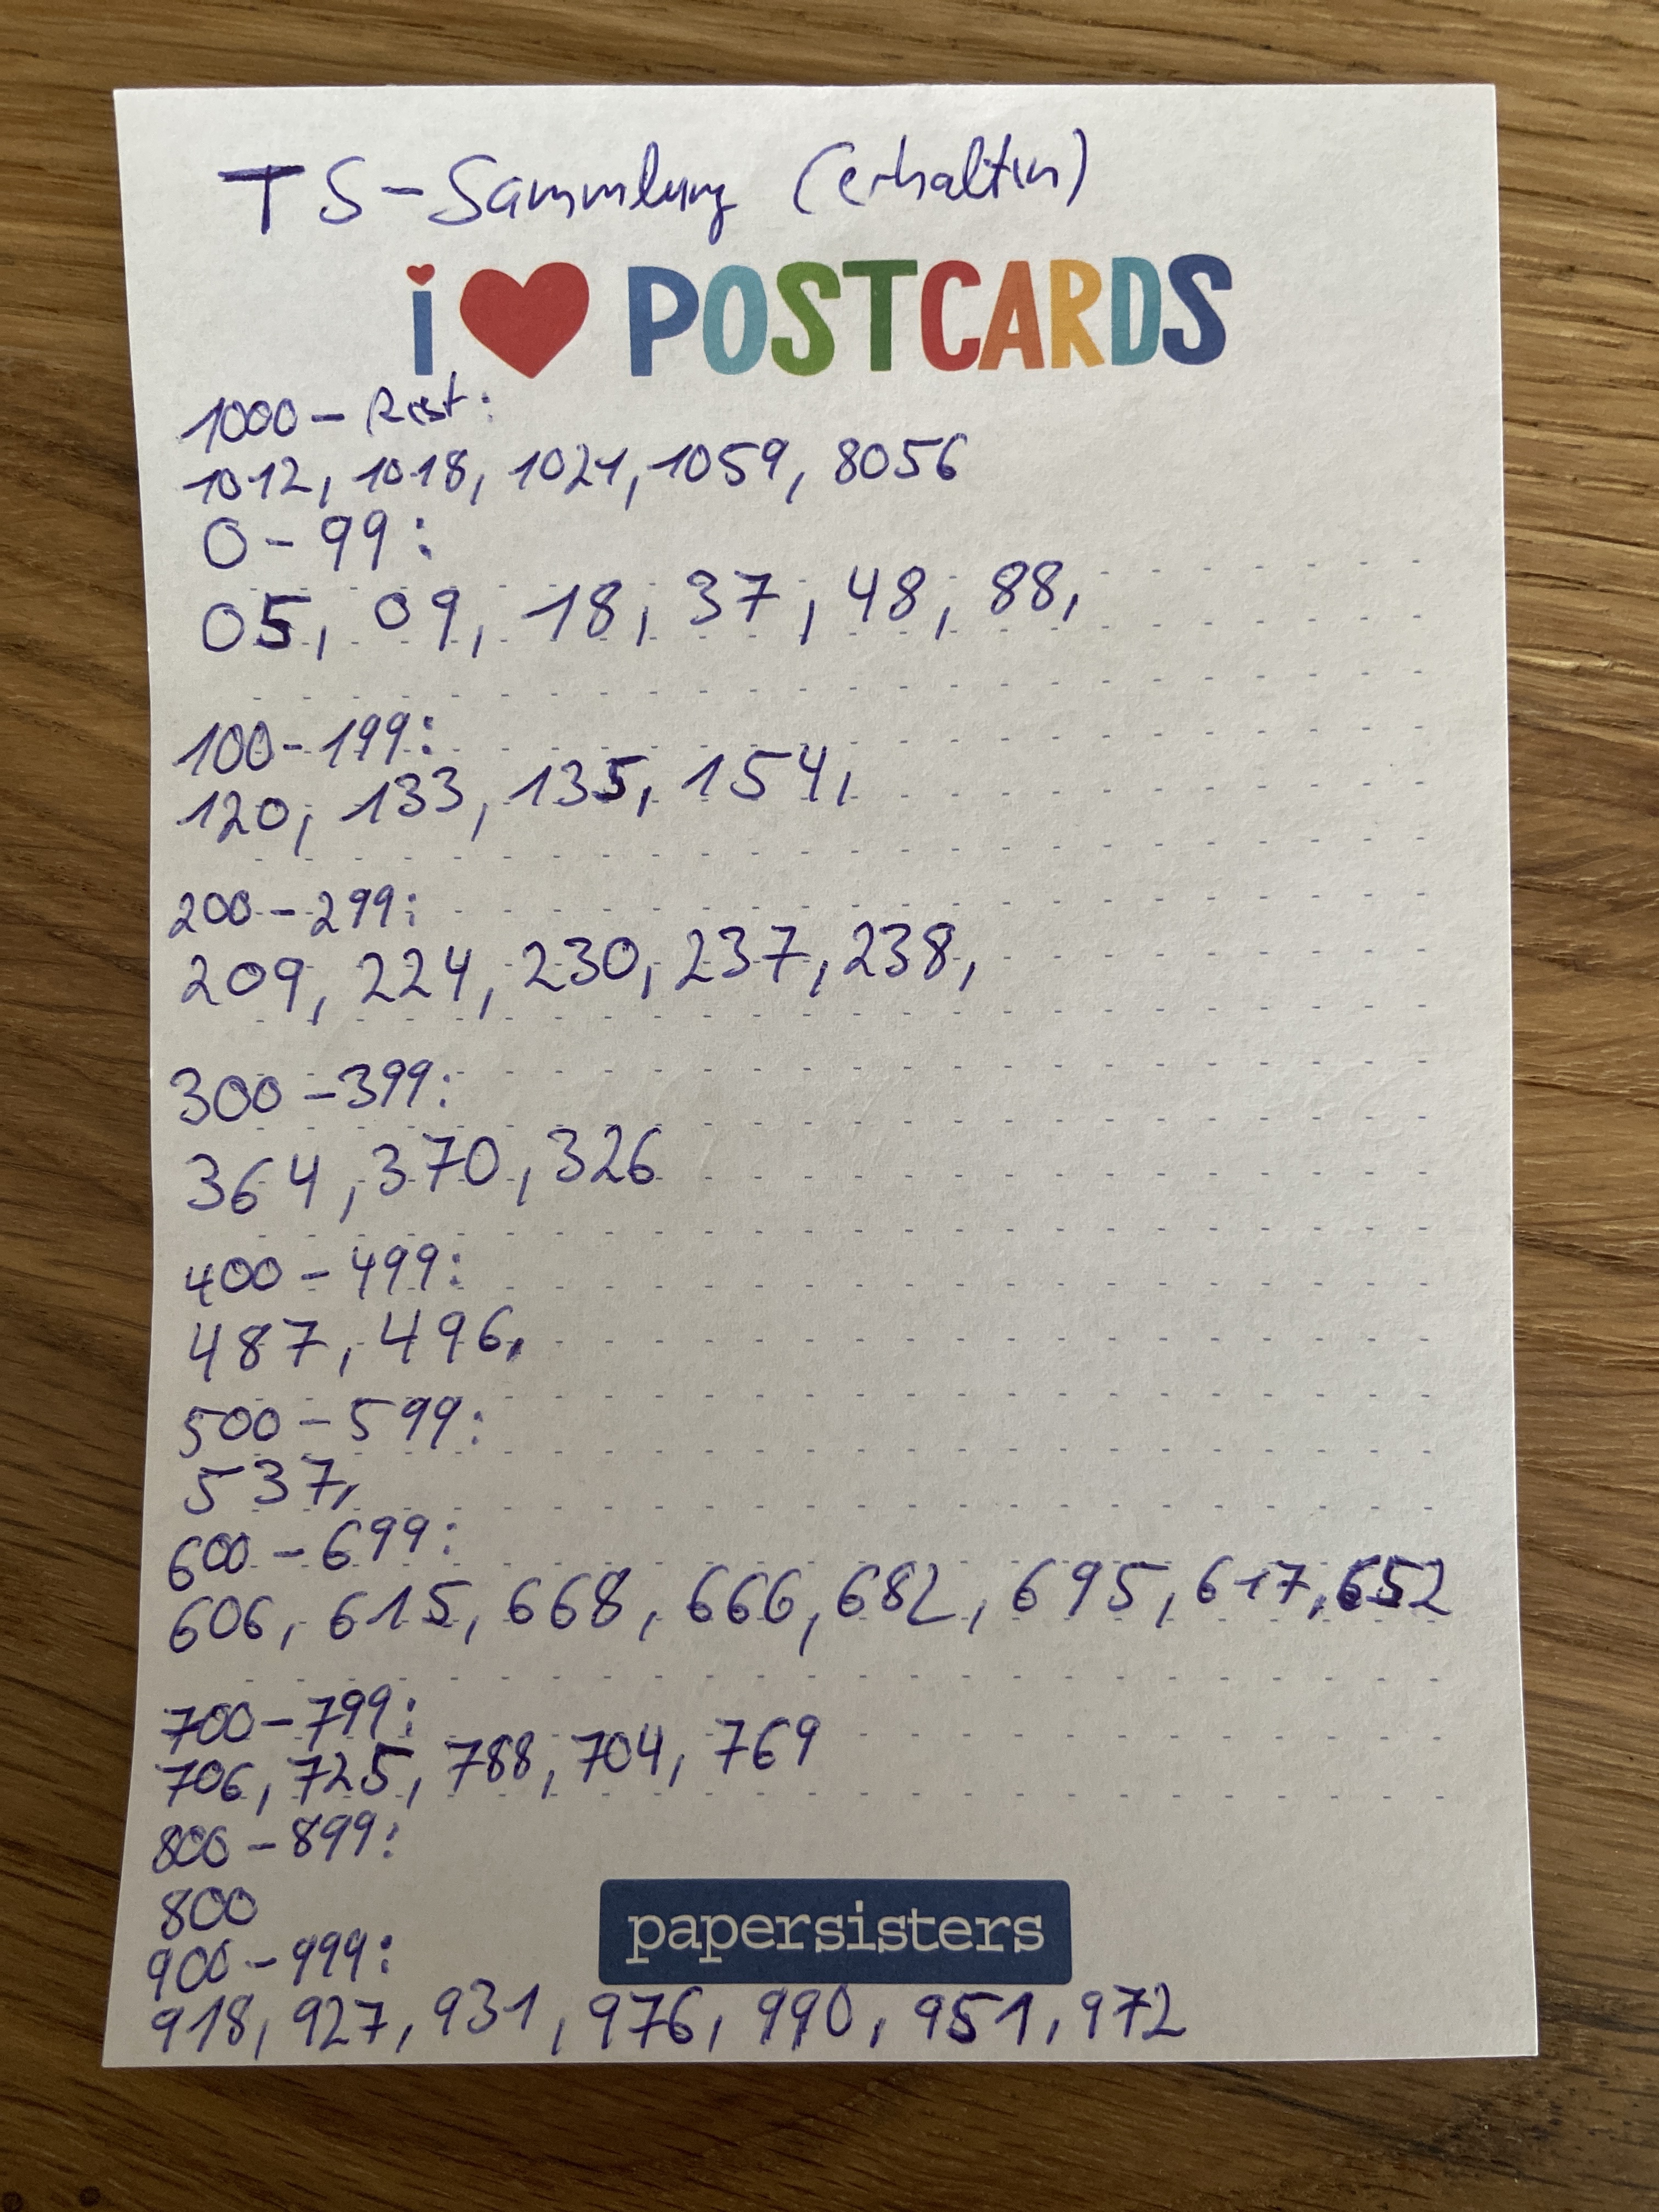 TS-Sammlung (erhalten)
i ♥ POSTCARDS
1000-Rest:
1012, 1018, 1021, 1059, 8056
0-99:
05, 09, 18, 37, 48, 88,
100-199:
120, 133, 135, 154,
200-299:
209, 224, 230, 237, 238,
300-399:
364, 370, 326
400-499:
487, 496,
500-599:
537,
600-699:
606, 615, 668, 666, 682, 695, 617, 652
700-799:
706, 725, 788, 704, 769
800-899:
800
papersisters
900-999:
918, 927, 931, 976, 990, 951, 972